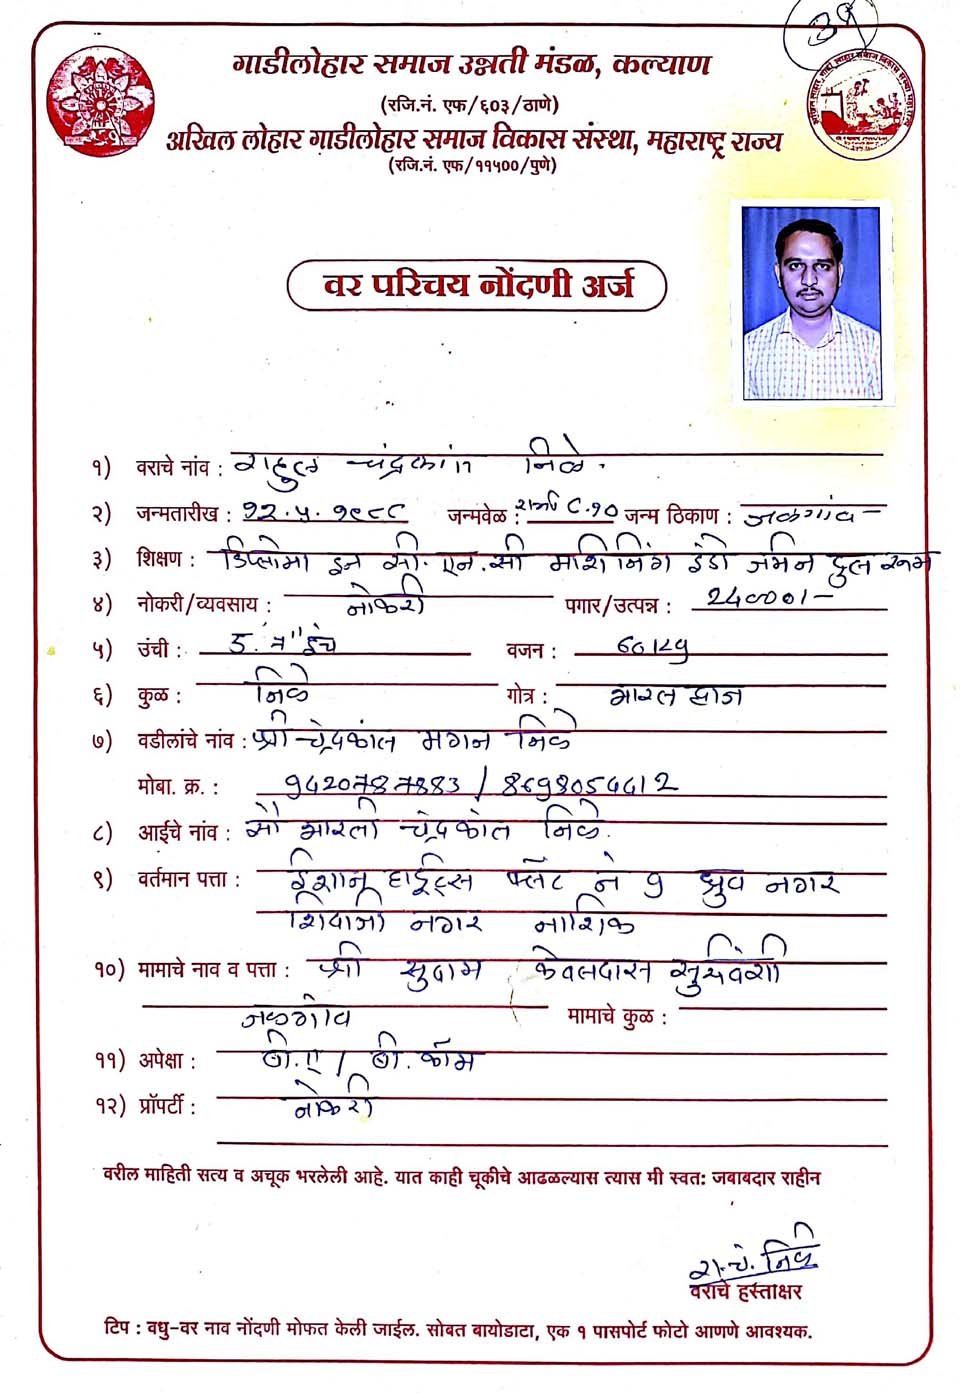 ३१
गाडीलोहार समाज उन्नती मंडळ, कल्याण
(रजि.नं. एफ/६०३/ठाणे)
अखिल लोहार गाडीलोहार समाज विकास संस्था, महाराष्ट्र राज्य
(रजि.नं. एफ/११५००/पुणे)
वर परिचय नोंदणी अर्ज
१) वराचे नांव : राहुल चंद्रकांत निळे.
२) जन्मतारीख : १२.५.१९८८ जन्मवेळ : रात्री ८.१० जन्म ठिकाण : जळगांव -
३) शिक्षण : डिप्लोमा इन सी. एन. सी मशिनिंग इंडो जर्मन टुल रूम
४) नोकरी/व्यवसाय : नोकरी पगार/उत्पन्न : 24000/-
५) उंची : 5. इंच वजन : 60 kg
६) कुळ : निळे गोत्र : भारद्वाज
७) वडीलांचे नांव : श्री चंद्रकांत मगन निळे
मोबा. क्र. : 9420787883 / 8698054412
८) आईचे नांव : सौ भारती चंद्रकांत निळे.
९) वर्तमान पत्ता : ईशान हाईट्स फ्लॅट नं 9 ध्रुव नगर
शिवाजी नगर नाशिक
१०) मामाचे नाव व पत्ता : श्री सुदाम केवलदास सुर्यवंशी
जळगांव मामाचे कुळ :
११) अपेक्षा : बी.ए / बी. कॉम
१२) प्रॉपर्टी : नोकरी
वरील माहिती सत्य व अचूक भरलेली आहे. यात काही चूकीचे आढळल्यास त्यास मी स्वत: जबाबदार राहीन
रा. चं. निळे
वराचे हस्ताक्षर
टिप : वधु-वर नाव नोंदणी मोफत केली जाईल. सोबत बायोडाटा, एक १ पासपोर्ट फोटो आणणे आवश्यक.